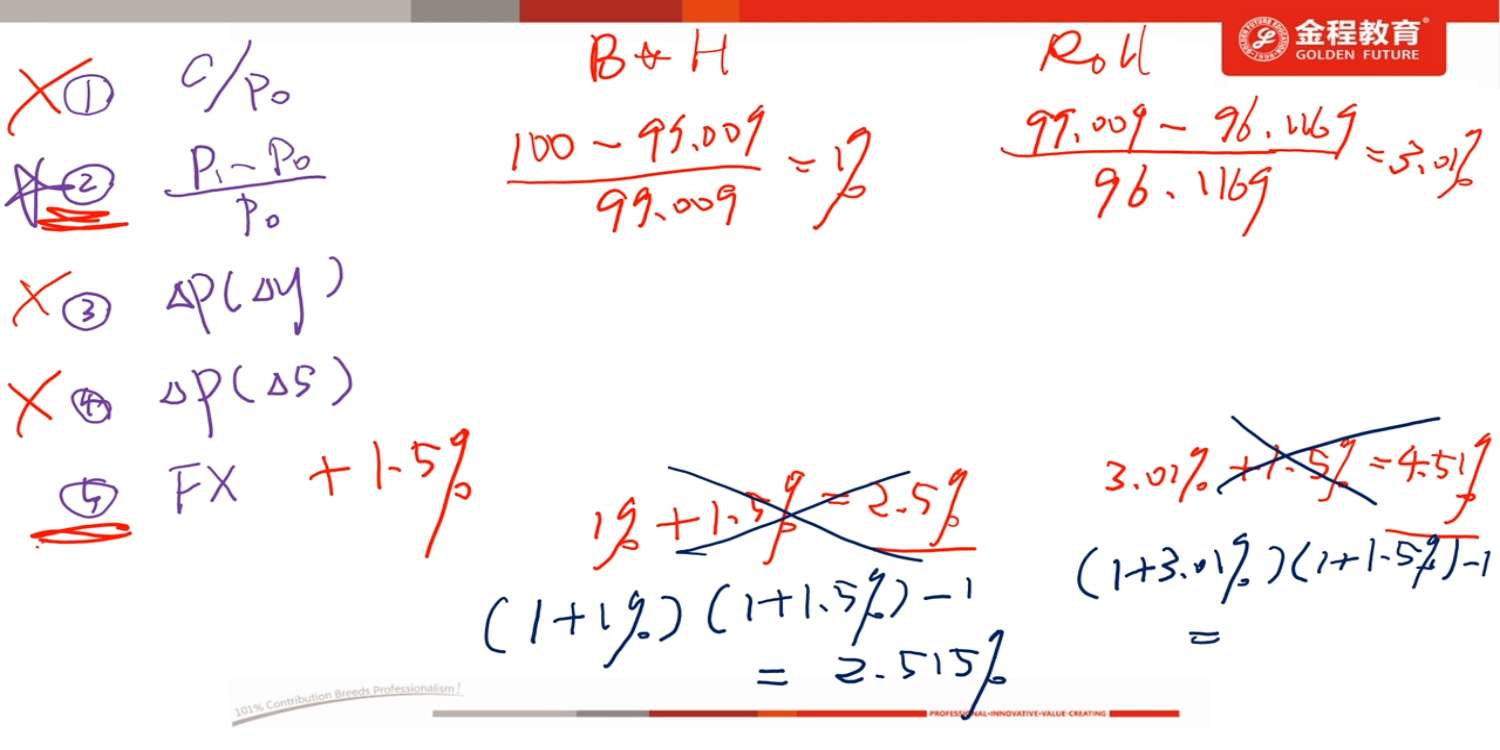 金程教育
GOLDEN FUTURE
① C/P₀
② (P₁-P₀)/P₀
③ ΔP(Δy)
④ ΔP(ΔS)
⑤ FX +1.5%
B&H
(100-99.009)/99.009=1%
1%+1.5%=2.5%
(1+1%)(1+1.5%)-1
= 2.515%
RoH
(99.009-96.1169)/96.1169=3.01%
3.01%+1.5%=4.51%
(1+3.01%)(1+1.5%)-1
=
101% Contribution Breeds Professionalism!
PROFESSIONAL·INNOVATIVE·VALUE-CREATING